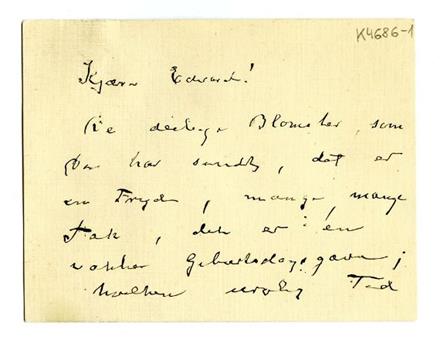 K4686-1
Kjære Edvard!
De deilige Blomster, som
Du har sendt, det er
en Fryd, mange, mange
Tak, det er en
vakker Geburtsdagsgave;
hvilken urolig Tid